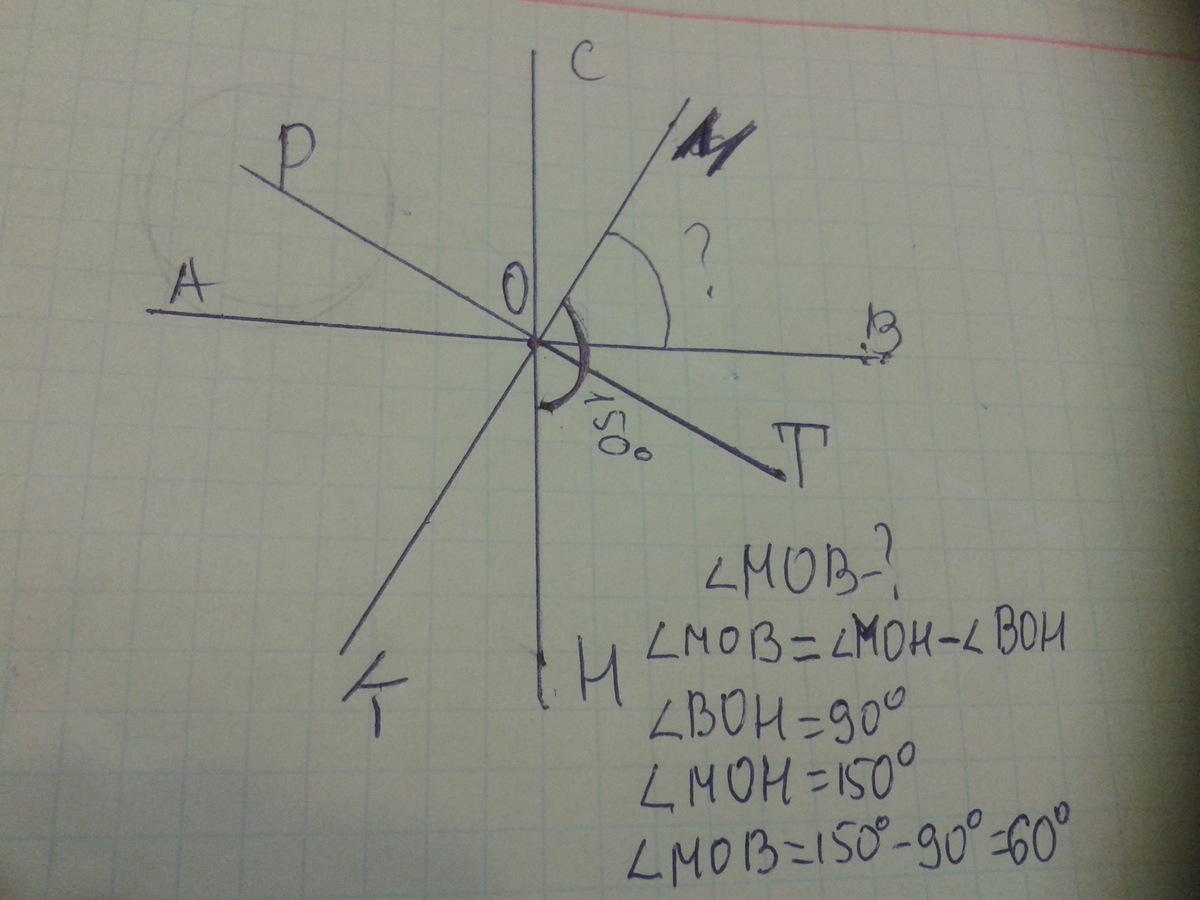 C
M
P
?
A
O
B
150°
T
∠MOB-?
K
H
∠MOB=∠MOH-∠BOH
∠BOH=90°
∠MOH=150°
∠MOB=150°-90°=60°